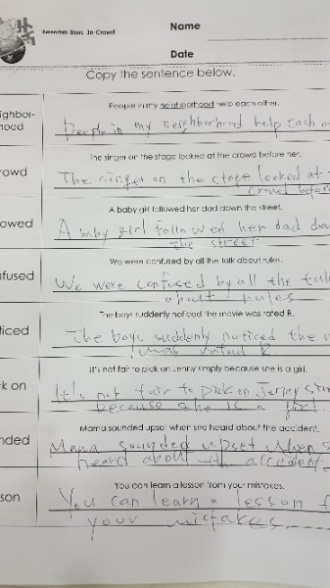 Name
Essential: Stars In-Crowd
Date
Copy the sentence below.
People in my neighborhood help each other.
ighbor-
hood
People in my neighborhood help each
The singer on the stage looked at the crowd before her.
rowd
The singer on the stage looked at
crowd before
A baby girl followed her dad down the street.
owed
A baby girl followed her dad down
the street
We were confused by all the talk about rules.
nfused
We were confused by all the talk
about rules
The boys suddenly noticed the movie was rated R.
ticed
The boys suddenly noticed the
was rated R
It's not fair to pick on Jenny simply because she is a girl.
k on
It's not fair to pick on Jenny
because she is a girl.
Mama sounded upset when she heard about the accident.
nded
Mama sounded upset when s
heard about the accident
You can learn a lesson from your mistakes.
son
You can learn a lesson f
your mistakes.